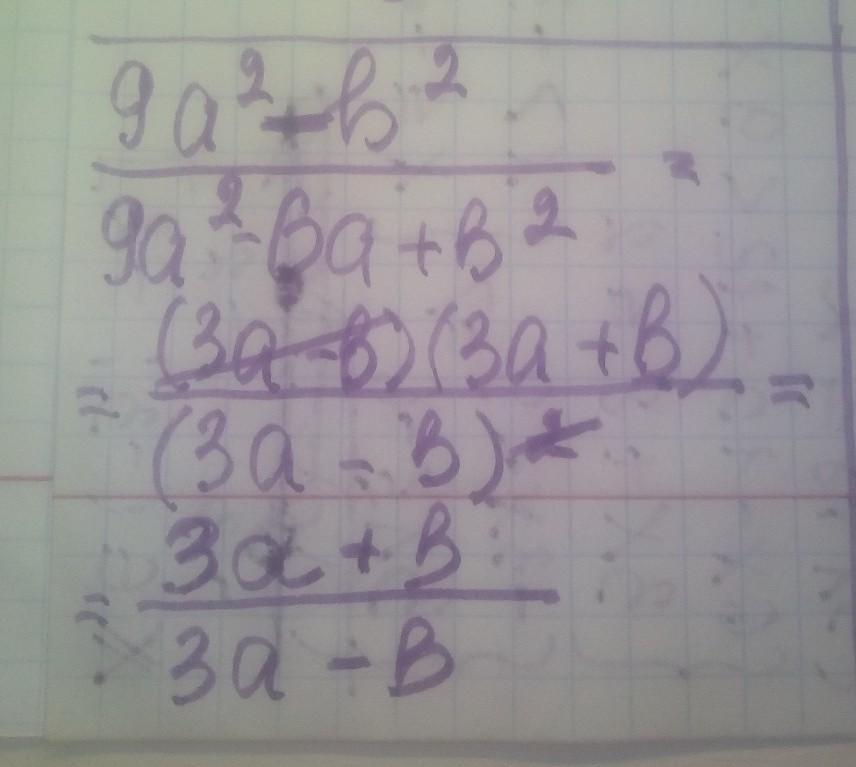 9a² - b²
/ 9a² - ba + b² =
= (3a - b)(3a + b) / (3a - b)² =
= 3a + b / 3a - b